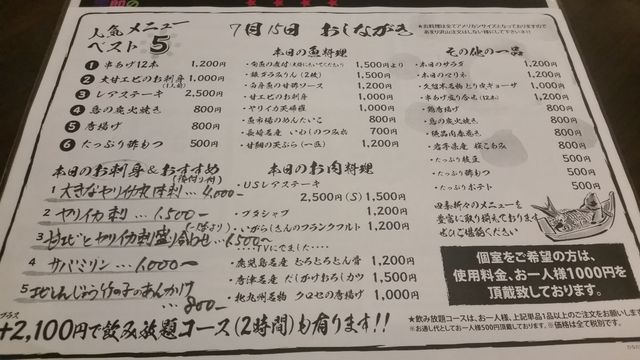 人気メニューベスト5
7月15日 おしながき
※お料理は全てアメリカンサイズとなっておりますので
あまり沢山注文はしない様にして下さい!!
1 串あげ12本 1,200円
2 大甘エビのお刺身 1,000円
(1人前)
3 レアステーキ 2,500円
4 鳥の炭火焼き 800円
5 唐揚げ 800円
6 たっぷり酢もつ 500円
本日のお刺身&おすすめ
1 大きなヤリイカ
4,000-
2 ヤリイカ刺 … 1,500-
3 甘エビとヤリイカ刺盛り合わせ … 1,500-
4 サバミリン … 1,000-
5 のあんかけ
… 800-
本日の魚料理
1,500円より
・銀ダラみりん(2枚) 1,500円
・白身魚の甘酢ソース 1,200円
・甘エビのお刺身 1,000円
・ヤリイカ天婦羅 1,000円
・魚市場のめんたいこ 800円
・長崎名産 いわしのつみれ 700円
・甘鯛の天ぷら(一枚) 1,200円
本日のお肉料理
・USレアステーキ
2,500円(S)1,500円
・ブタシャブ 1,200円
・いがらしさんのフランクフルト 1,200円
・・・・TVにでました・・・・
・鹿児島名産 とろとろとん骨 1,200円
・唐津名産 だしがけおろしカツ 1,500円
・北九州名物 クエセの唐揚げ 1,000円
その他の一品
・本日のサラダ 1,200円
・本日のマリネ 1,200円
・久留米名物とり皮ギョーザ 1,000円
・串あげ盛り合せ(12本) 1,200円
・鶏唐揚げ 800円
・鳥の炭火焼き 800円
・絶品肉春巻き 800円
・岩手県産 桜こわふ 800円
・たっぷり枝豆 500円
・たっぷり酢もつ 500円
・たっぷりポテト 500円
四季折々のメニューを
豊富に取り揃えております
ぜひご堪能ください
個室をご希望の方は、
使用料金、お一人様1000円を
頂戴致しております。
プラス
+2,100円で飲み放題コース(2時間)も有ります!!
★飲み放題コースは、お一人様、上記単品1品以上のご注文をお願いします
※お通し代としてお一人様500円頂戴しております。 ※価格は全て税別です。